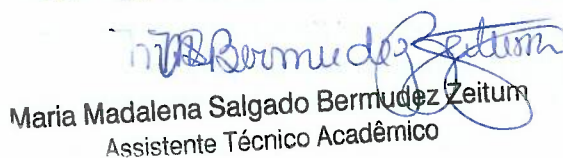 Bermudez Zeitum
Maria Madalena Salgado Bermudez Zeitum
Assistente Técnico Acadêmico